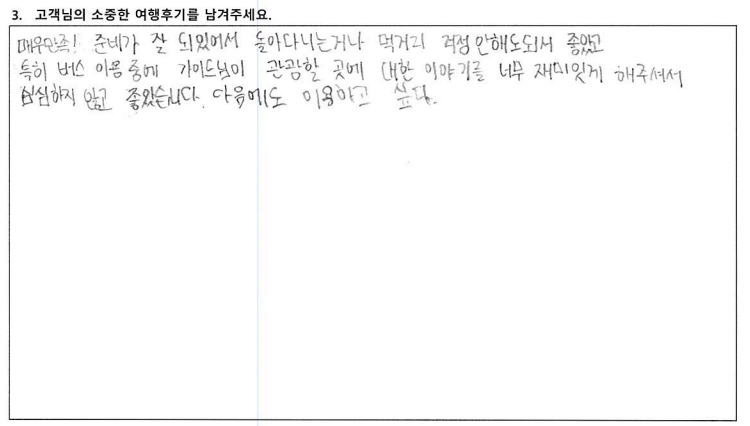 3. 고객님의 소중한 여행후기를 남겨주세요.
매우만족! 준비가 잘 되있어서 돌아다니는거나 먹거리 걱정안해도되서 좋았고
특히 버스 이용 중에 가이드님이 관광할 곳에 대한 이야기를 너무 재미있게 해주셔서
심심하지 않고 좋았습니다. 다음에도 이용하고 싶다.